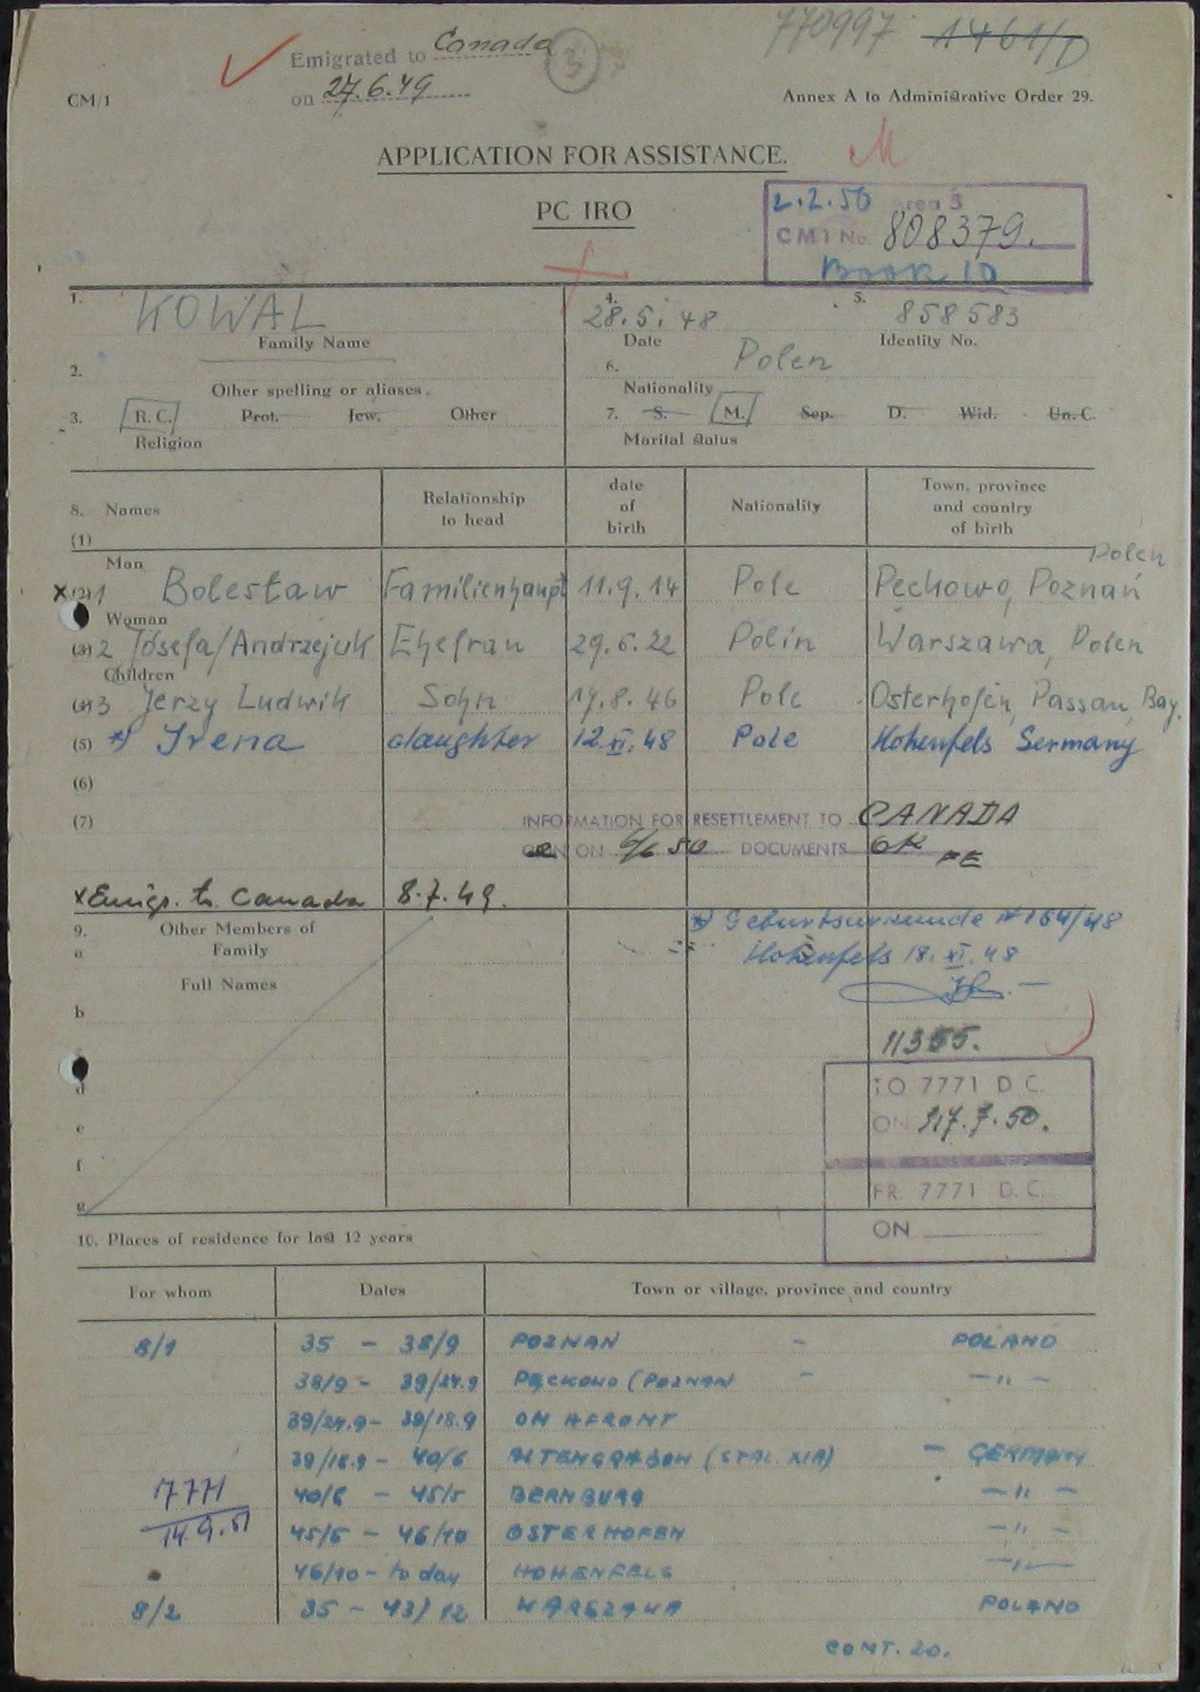 Emigrated to Canada
on 27.6.49
3
770997 1461/D
CM/1
Annex A to Administrative Order 29.
APPLICATION FOR ASSISTANCE.
M
PC IRO
2.2.50 Area 3
CM1 No. 808379.
BOOK 10
1. KOWAL
Family Name
4. 28.5.48
Date
5. 858583
Identity No.
2.
Other spelling or aliases.
6. Polen
Nationality
3. R. C. Prot. Jew. Other
Religion
7. S. M. Sep. D. Wid. Un. C.
Marital status
8. Names
Relationship to head
date of birth
Nationality
Town, province and country of birth
(1)
Man
Polen
x (2) 1 Bolesław Familienhaupt 11.9.14 Pole Pechowo, Poznań
Woman
(3) 2 Józefa/Andrzejuk Ehefrau 29.6.22 Polin Warszawa, Polen
Children
(4) 3 Jerzy Ludwik Sohn 19.8.46 Pole Osterhofen, Passau, Bay.
(5) *) Irena daughter 12.XI.48 Pole Hohenfels Germany
(6)
(7)
INFORMATION FOR RESETTLEMENT TO CANADA
ON 6/6 50 DOCUMENTS OK
x Emigr. to Canada 8.7.49.
9. Other Members of
a Family
Full Names
*) Geburtsurkunde № 164/48
Hohenfels 18.XI.48
b
11355.
d
e
f
g
TO 7771 D C.
ON 17.7.50.
FR. 7771 D. C.
ON
10. Places of residence for last 12 years
For whom
Dates
Town or village, province and country
8/1 35 – 38/9 POZNAN – POLAND
38/9 – 39/24.9 PĘCKOWO (POZNAN – –"–
39/24.9 – 39/18.9 ON AFRONT
39/18.9 – 40/6 ALTENGRABOW (STAL. XIA) – GERMANY
40/6 – 45/5 BERNBURG –"–
7771
14.9.51
45/5 – 46/10 OSTERHOFEN –"–
46/10 – to day HOHENFELS –"–
8/2 35 – 43/12 WARSZAWA POLAND
CONT. 20.